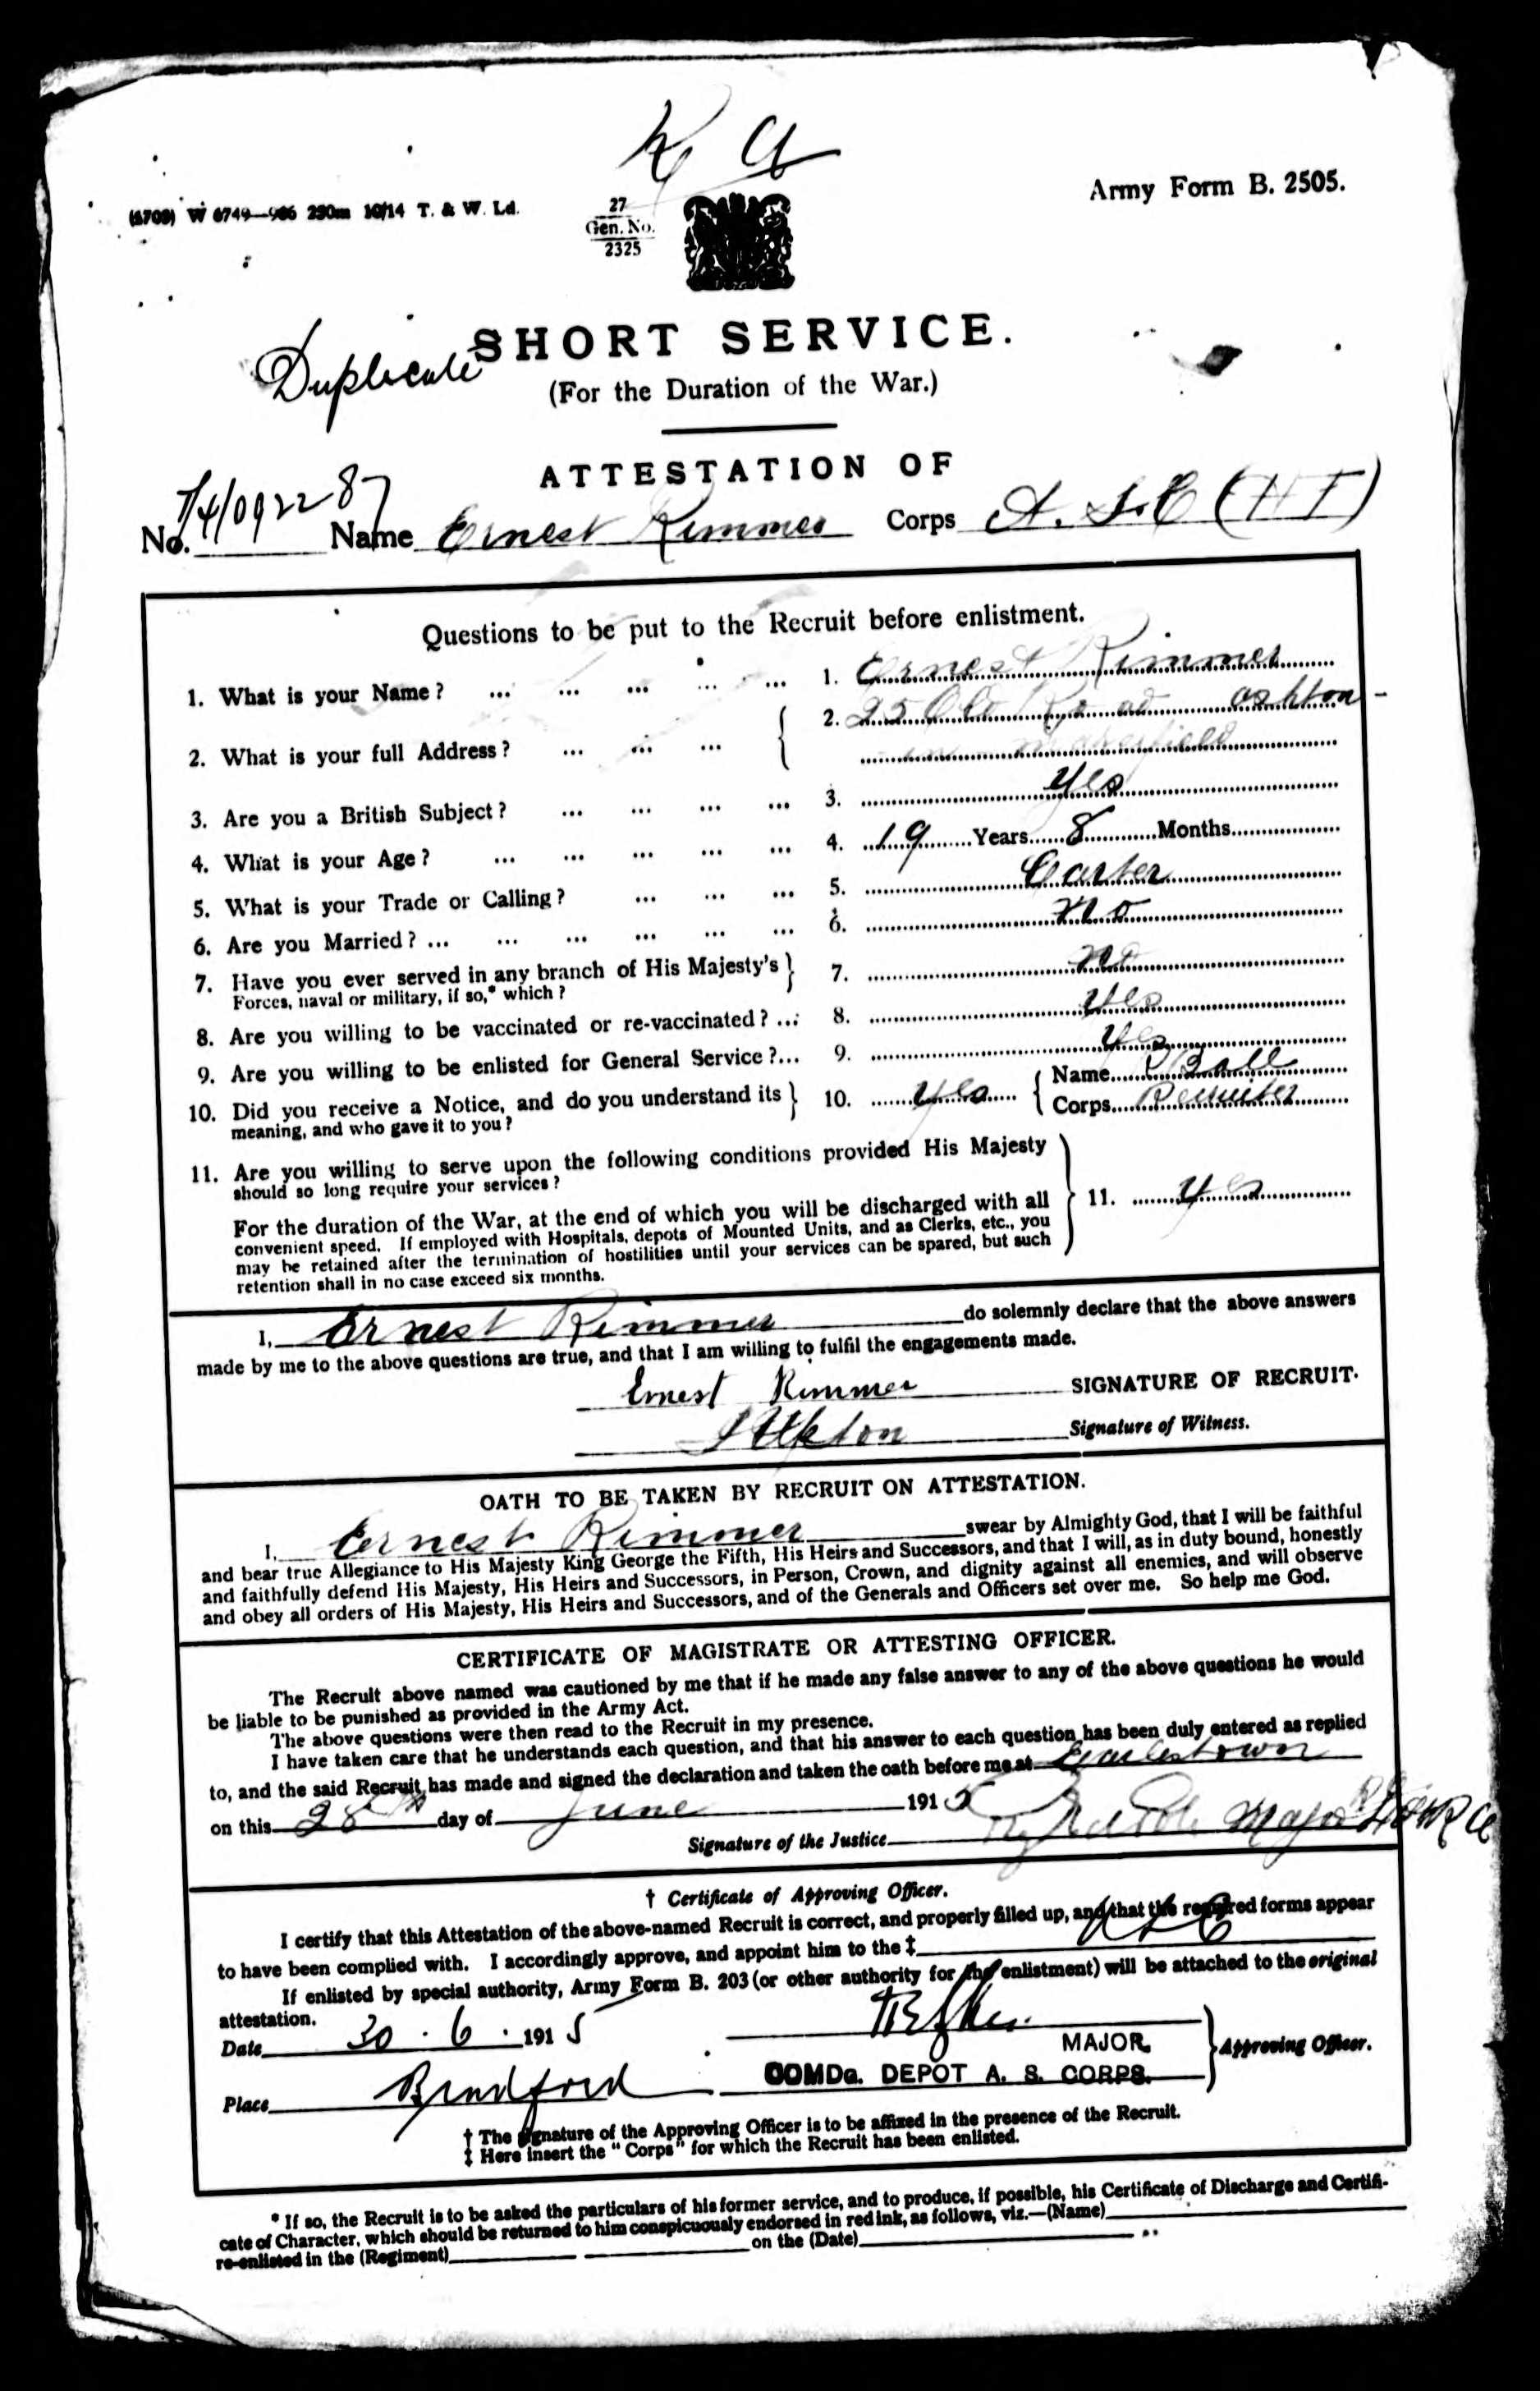 K A
(6708) W 6749—986 250m 10/14 T. & W. Ld.
27
Gen. No.
2325
Army Form B. 2505.
Duplicate
SHORT SERVICE.
(For the Duration of the War.)
ATTESTATION OF
No. T4/092287 Name Ernest Rimmer Corps A.S.C (HT)
Questions to be put to the Recruit before enlistment.
1. What is your Name? ... ... ... ... ... 1. Ernest Rimmer
2. What is your full Address? ... ... ... { 2. 25 Old Road ashton-
in-makerfield
3. Are you a British Subject? ... ... ... ... 3. Yes
4. What is your Age? ... ... ... ... ... 4. 19 Years 8 Months
5. What is your Trade or Calling? ... ... ... 5. Carter
6. Are you Married? ... ... ... ... ... ... 6. no
7. Have you ever served in any branch of His Majesty's } 7. no
Forces, naval or military, if so,* which?
8. Are you willing to be vaccinated or re-vaccinated? ... 8. yes
9. Are you willing to be enlisted for General Service?... 9. yes
10. Did you receive a Notice, and do you understand its } 10. yes { Name Ball
meaning, and who gave it to you? Corps Recruiter
11. Are you willing to serve upon the following conditions provided His Majesty
should so long require your services?
For the duration of the War, at the end of which you will be discharged with all } 11. yes
convenient speed. If employed with Hospitals, depots of Mounted Units, and as Clerks, etc., you
may be retained after the termination of hostilities until your services can be spared, but such
retention shall in no case exceed six months.
I, Ernest Rimmer do solemnly declare that the above answers
made by me to the above questions are true, and that I am willing to fulfil the engagements made.
Ernest Rimmer SIGNATURE OF RECRUIT.
Upton Signature of Witness.
OATH TO BE TAKEN BY RECRUIT ON ATTESTATION.
I, Ernest Rimmer swear by Almighty God, that I will be faithful
and bear true Allegiance to His Majesty King George the Fifth, His Heirs and Successors, and that I will, as in duty bound, honestly
and faithfully defend His Majesty, His Heirs and Successors, in Person, Crown, and dignity against all enemies, and will observe
and obey all orders of His Majesty, His Heirs and Successors, and of the Generals and Officers set over me. So help me God.
CERTIFICATE OF MAGISTRATE OR ATTESTING OFFICER.
The Recruit above named was cautioned by me that if he made any false answer to any of the above questions he would
be liable to be punished as provided in the Army Act.
The above questions were then read to the Recruit in my presence.
I have taken care that he understands each question, and that his answer to each question has been duly entered as replied
to, and the said Recruit has made and signed the declaration and taken the oath before me at Earlestown
on this 28th day of June 1915
Signature of the Justice Major
† Certificate of Approving Officer.
I certify that this Attestation of the above-named Recruit is correct, and properly filled up, and that the required forms appear
to have been complied with. I accordingly approve, and appoint him to the ‡ ASC
If enlisted by special authority, Army Form B. 203 (or other authority for the enlistment) will be attached to the original
attestation.
Date 30.6.1915
MAJOR.
COMDG. DEPOT A. S. CORPS. } Approving Officer.
Place Bradford
† The signature of the Approving Officer is to be affixed in the presence of the Recruit.
‡ Here insert the "Corps" for which the Recruit has been enlisted.
* If so, the Recruit is to be asked the particulars of his former service, and to produce, if possible, his Certificate of Discharge and Certifi-
cate of Character, which should be returned to him conspicuously endorsed in red ink, as follows, viz.—(Name)
re-enlisted in the (Regiment) on the (Date)